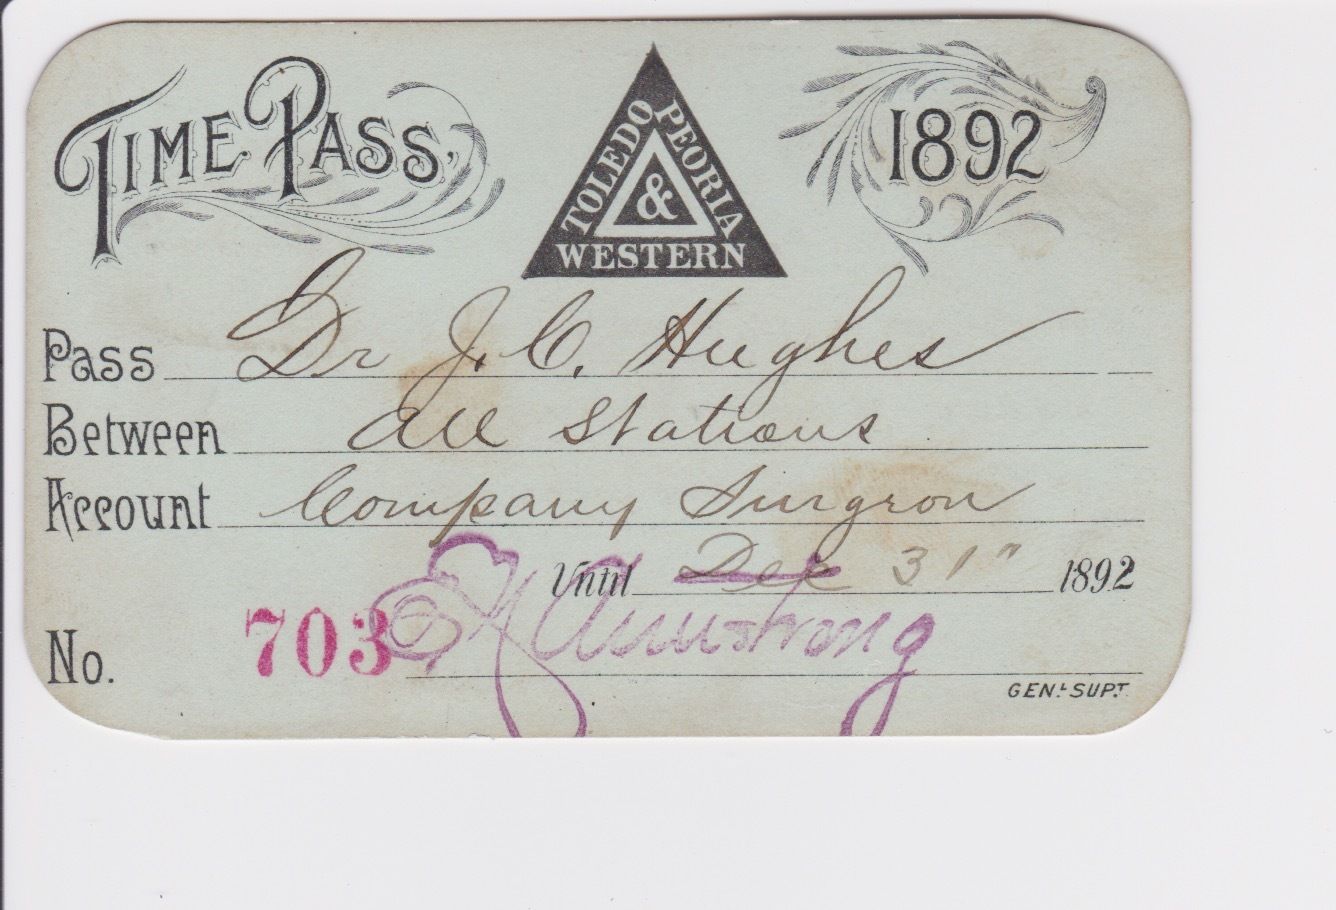 TIME PASS.
TOLEDO PEORIA & WESTERN
1892
Pass Dr J. C. Hughes
Between All Stations
Account Company Surgeon
Until Dec 31" 1892
No. 703 E N Armstrong
GEN'L SUP'T.